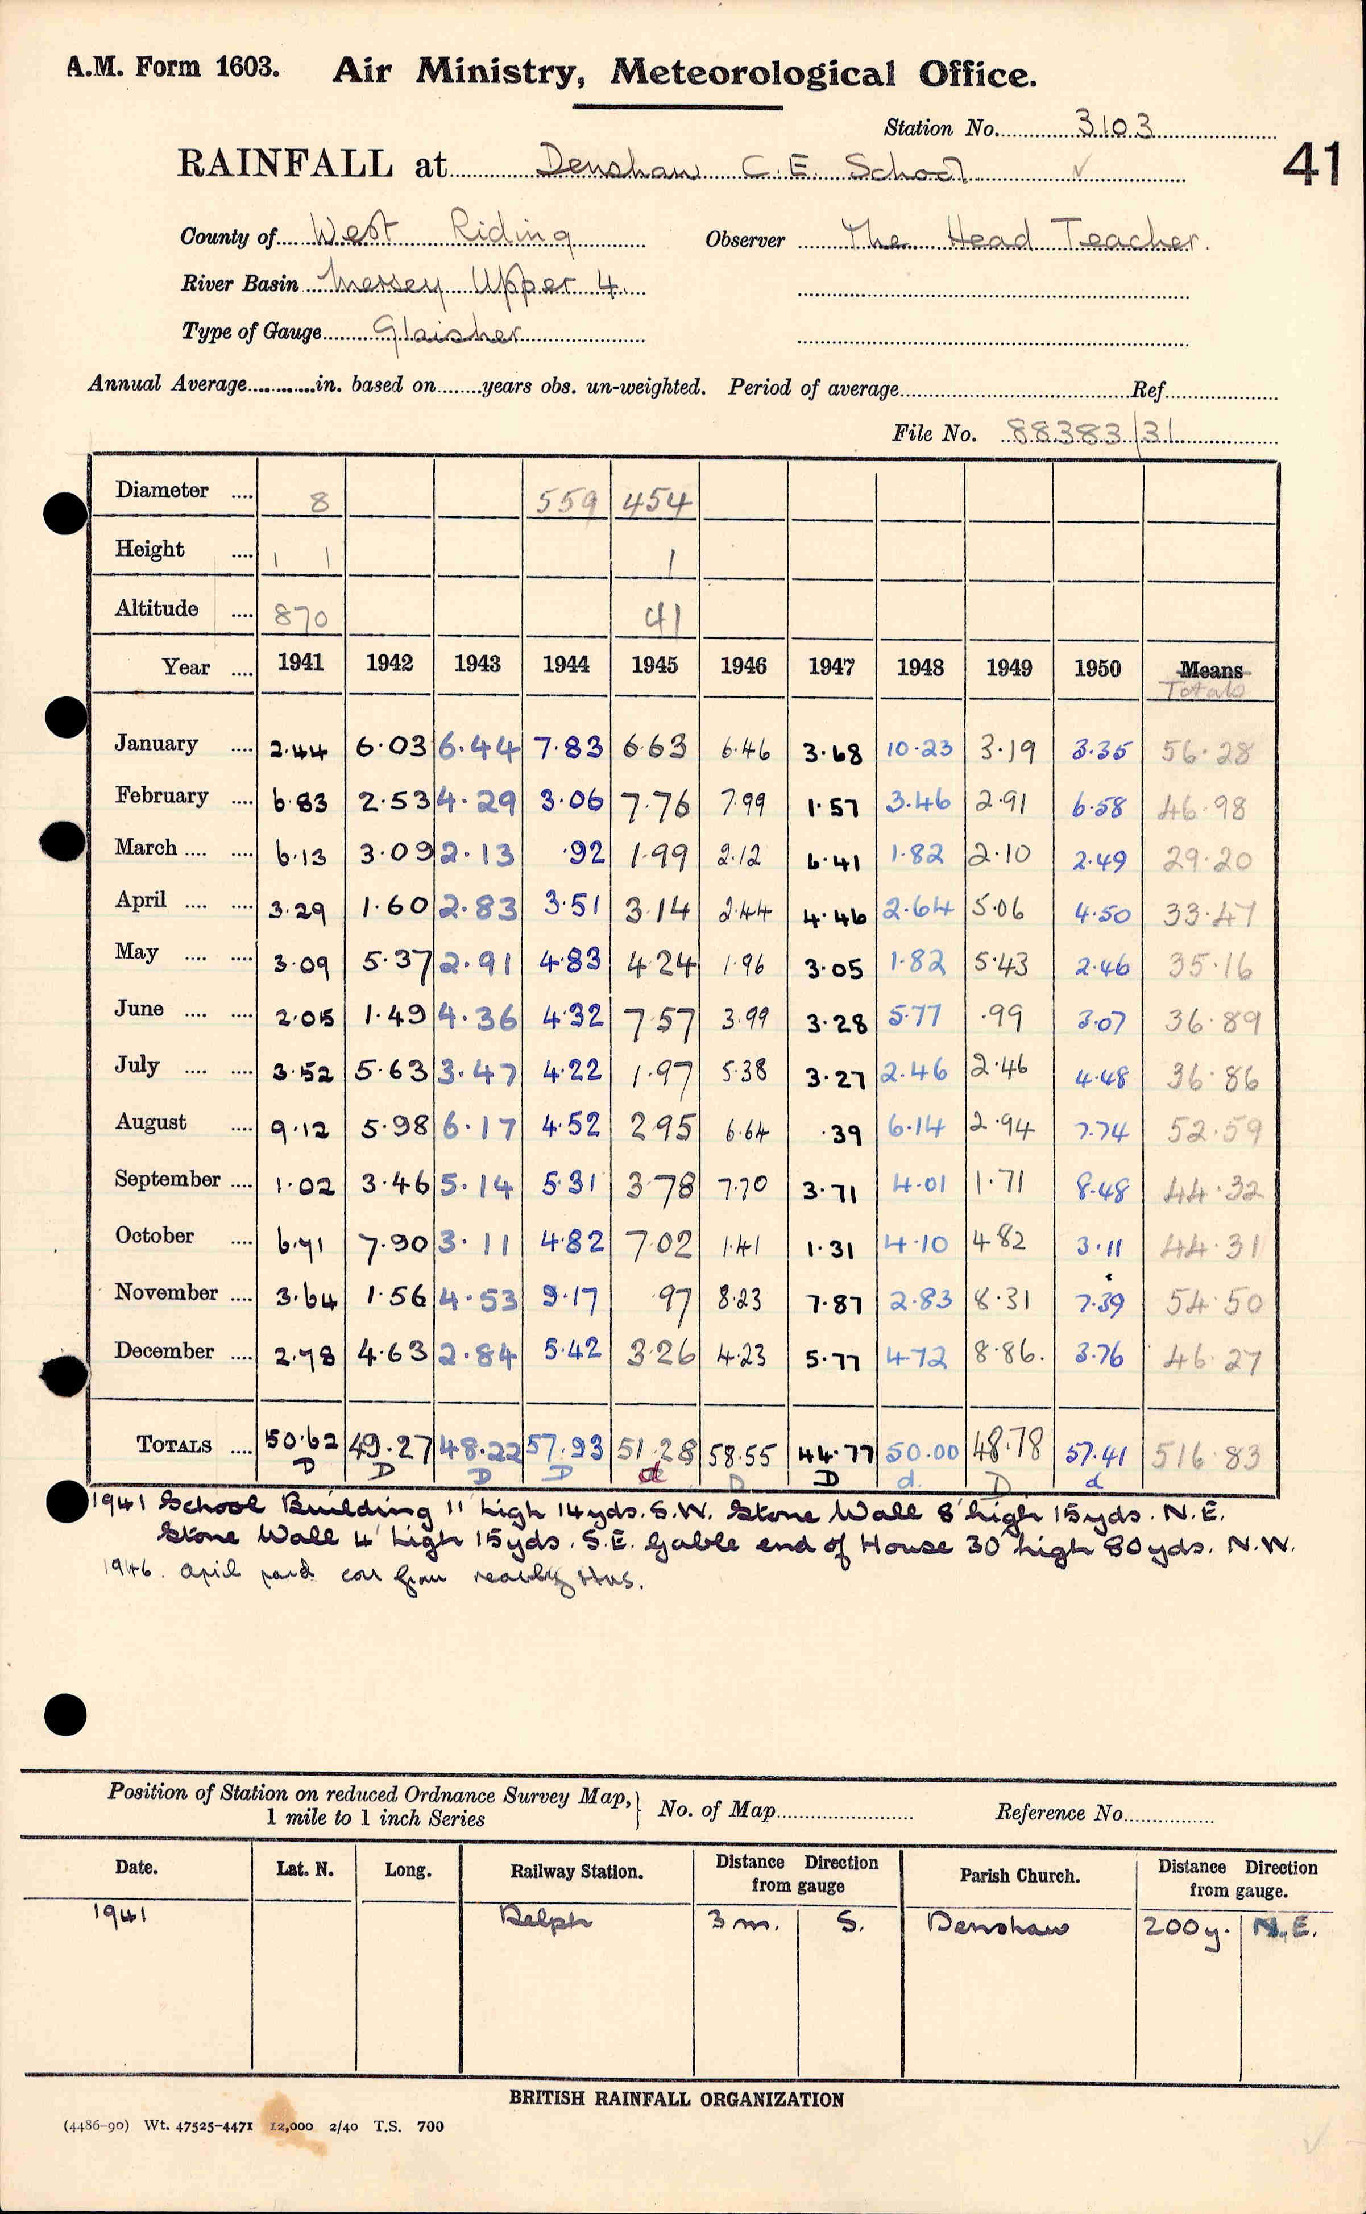 A.M. Form 1603. Air Ministry, Meteorological Office.
Station No. 3103
41
RAINFALL at Denshaw C.E. School ✓
County of West Riding Observer The Head Teacher.
River Basin Mersey Upper 4.
Type of Gauge Glaisher
Annual Average............in. based on.......years obs. un-weighted. Period of average..............................Ref...............
File No. 88383/31
Diameter .... 8 559 454
Height .... 1 1 1
Altitude .... 870 41
Year .... 1941 1942 1943 1944 1945 1946 1947 1948 1949 1950 Means
Totals
January .... 2.44 6.03 6.44 7.83 6.63 6.46 3.68 10.23 3.19 3.35 56.28
February .... 6.83 2.53 4.29 3.06 7.76 7.99 1.57 3.46 2.91 6.58 46.98
March .... .... 6.13 3.09 2.13 .92 1.99 2.12 6.41 1.82 2.10 2.49 29.20
April .... .... 3.29 1.60 2.83 3.51 3.14 2.44 4.46 2.64 5.06 4.50 33.47
May .... .... 3.09 5.37 2.91 4.83 4.24 1.96 3.05 1.82 5.43 2.46 35.16
June .... .... 2.05 1.49 4.36 4.32 7.57 3.99 3.28 5.77 .99 3.07 36.89
July .... .... 3.52 5.63 3.47 4.22 1.97 5.38 3.27 2.46 2.46 4.48 36.86
August .... 9.12 5.98 6.17 4.52 2.95 6.64 .39 6.14 2.94 7.74 52.59
September .... 1.02 3.46 5.14 5.31 3.78 7.70 3.71 4.01 1.71 8.48 44.32
October .... 6.71 7.90 3.11 4.82 7.02 1.41 1.31 4.10 4.82 3.11 44.31
November .... 3.64 1.56 4.53 9.17 .97 8.23 7.87 2.83 8.31 7.39 54.50
December .... 2.78 4.63 2.84 5.42 3.26 4.23 5.77 4.72 8.86. 3.76 46.27
TOTALS .... 50.62 49.27 48.22 57.93 51.28 58.55 44.77 50.00 48.78 57.41 516.83
D D D D d D D d. D d
1941 School Building 11' high 14yds. S.W. Stone Wall 8' high 15yds. N.E.
Stone Wall 4' high 15yds. S.E. Gable end of House 30' high 80yds. N.W.
1946. April corr from nearby
Position of Station on reduced Ordnance Survey Map,
1 mile to 1 inch Series
No. of Map........................ Reference No................
Date. Lat. N. Long. Railway Station. Distance Direction from gauge Parish Church. Distance Direction from gauge.
1941 Delph 3 m. S. Denshaw 200y. N.E.
BRITISH RAINFALL ORGANIZATION
(4486-90) Wt. 47525-4471 12,000 2/40 T.S. 700
✓